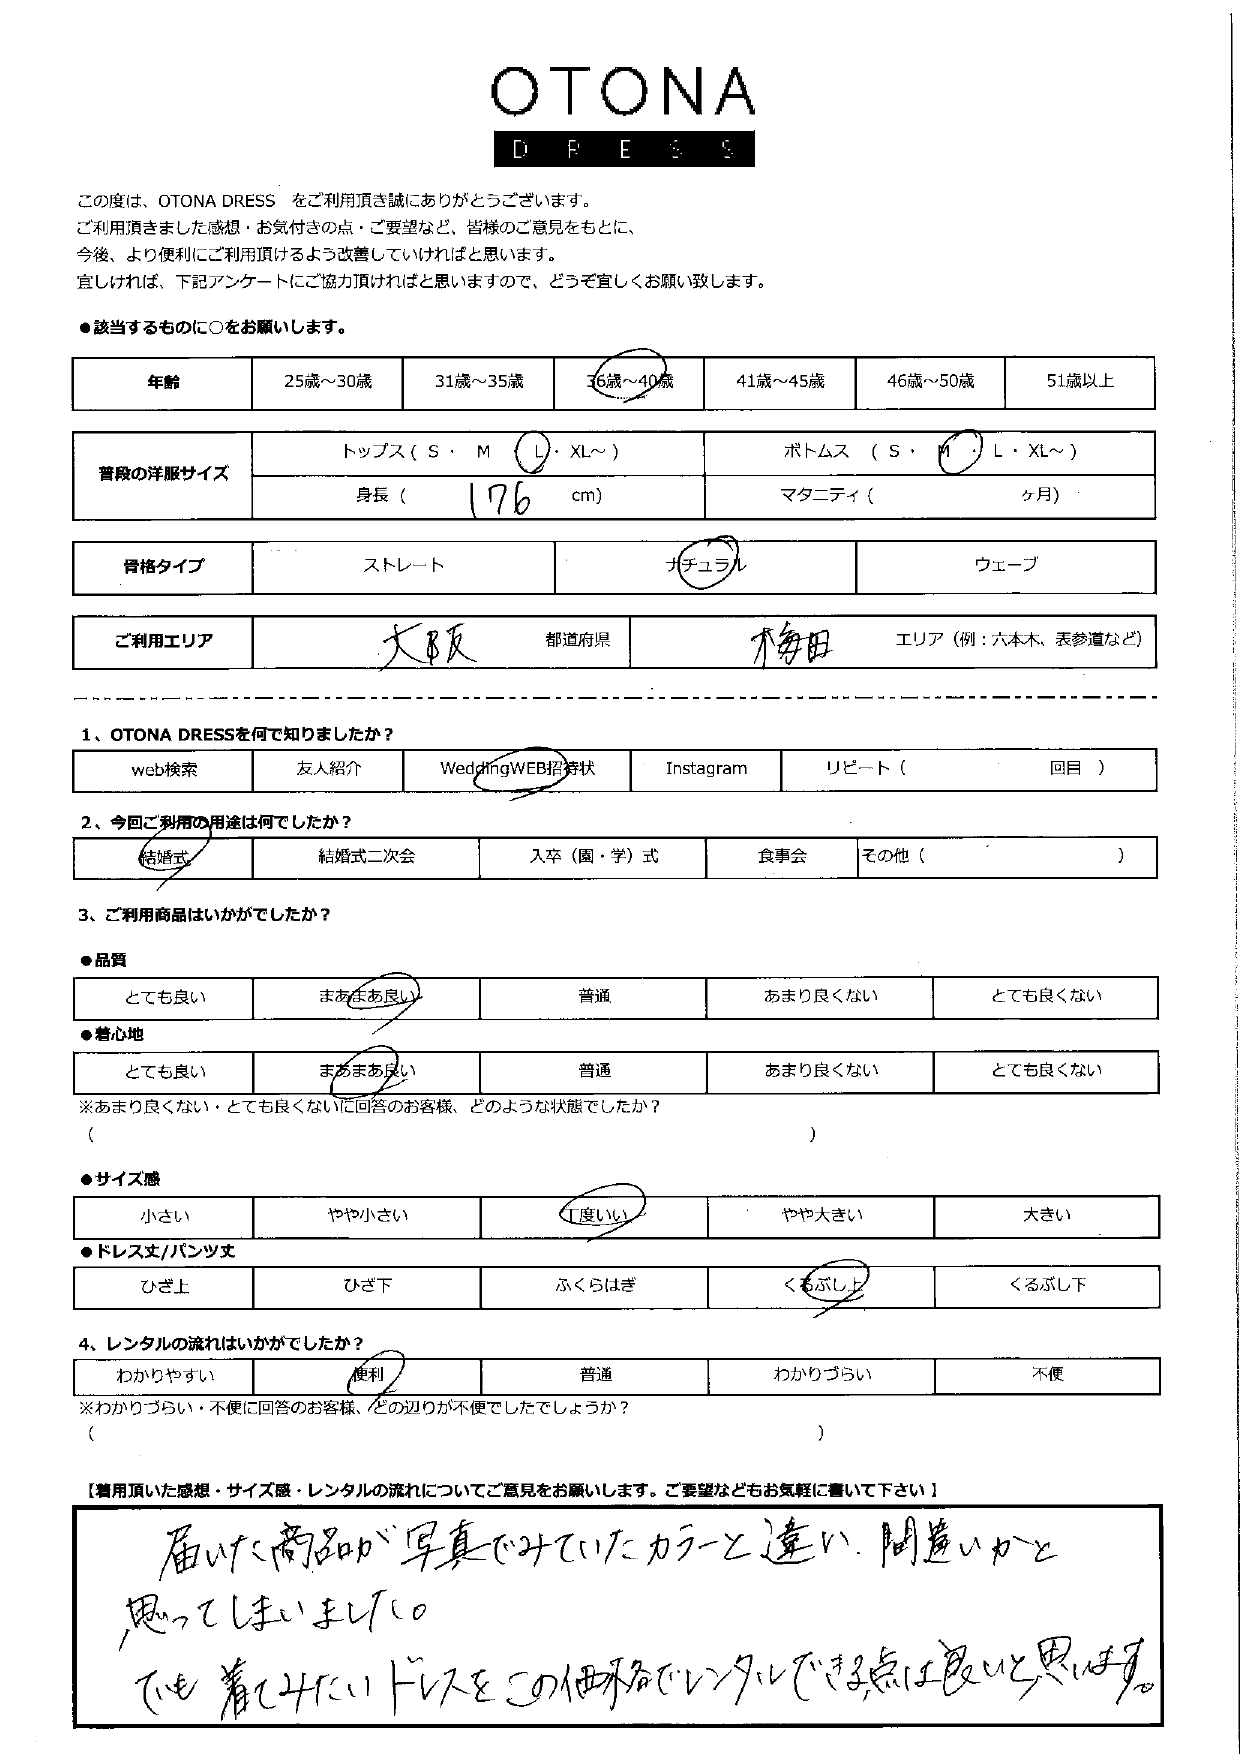 OTONA
DRESS
この度は、OTONA DRESS　をご利用頂き誠にありがとうございます。
ご利用頂きました感想・お気付きの点・ご要望など、皆様のご意見をもとに、
今後、より便利にご利用頂けるよう改善していければと思います。
宜しければ、下記アンケートにご協力頂ければと思いますので、どうぞ宜しくお願い致します。
●該当するものに○をお願いします。
年齢 25歳～30歳 31歳～35歳 36歳～40歳 41歳～45歳 46歳～50歳 51歳以上
普段の洋服サイズ トップス ( S ・ M ・ L ・ XL～ ) ボトムス ( S ・ M ・ L ・ XL～ )
身長 ( 176 cm) マタニティ ( ヶ月)
骨格タイプ ストレート ナチュラル ウェーブ
ご利用エリア 大阪 都道府県 梅田 エリア（例：六本木、表参道など）
1、OTONA DRESSを何で知りましたか？
web検索 友人紹介 WeddingWEB招待状 Instagram リピート ( 回目 )
2、今回ご利用の用途は何でしたか？
結婚式 結婚式二次会 入卒（園・学）式 食事会 その他 ( )
3、ご利用商品はいかがでしたか？
●品質
とても良い まあまあ良い 普通 あまり良くない とても良くない
●着心地
とても良い まあまあ良い 普通 あまり良くない とても良くない
※あまり良くない・とても良くないに回答のお客様、どのような状態でしたか？
( )
●サイズ感
小さい やや小さい 丁度いい やや大きい 大きい
●ドレス丈/パンツ丈
ひざ上 ひざ下 ふくらはぎ くるぶし上 くるぶし下
4、レンタルの流れはいかがでしたか？
わかりやすい 便利 普通 わかりづらい 不便
※わかりづらい・不便に回答のお客様、どの辺りが不便でしたでしょうか？
( )
【着用頂いた感想・サイズ感・レンタルの流れについてご意見をお願いします。ご要望などもお気軽に書いて下さい】
届いた商品が写真でみていたカラーと違い、間違いかと
思ってしまいました。
でも着てみたいドレスをこの価格でレンタルできる点は良いと思います。